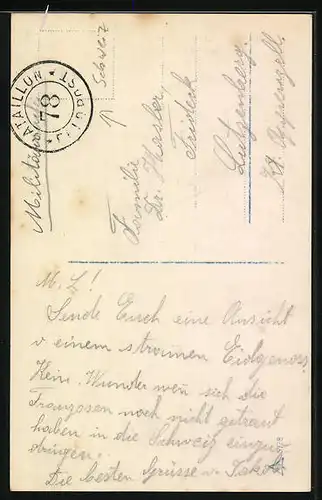 BATAILLON
78
FELDPOST
Militär
Schweiz
Familie
Dr. Hasler,
Friedeck
Lutzenberg.
Kt. Appenzell.
M. L!
Sende Euch eine Ansicht
v einem strammen Eidgenoss.
Kein Wunder wen sich die
Franzosen noch nicht getraut
haben in die Schweiz einzu
dringen.
Die besten Grüsse v. Jakob